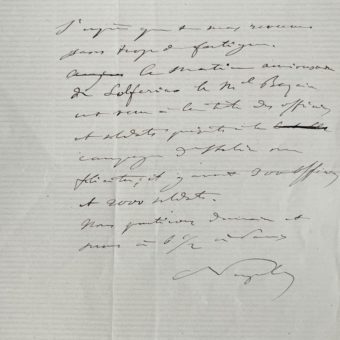 J'espère que tu es revenue
sans trop de fatigue.
Ce matin anniversaire
de Solferino le Mal Bazaine
est venu à la tête des officiers
et soldats qui ont fait la
campagne d'Italie me
féliciter, il y avait 200 officiers
et 2000 soldats.
Nous partirons demain et
serons à 6 1/2 à Paris
Napoléon